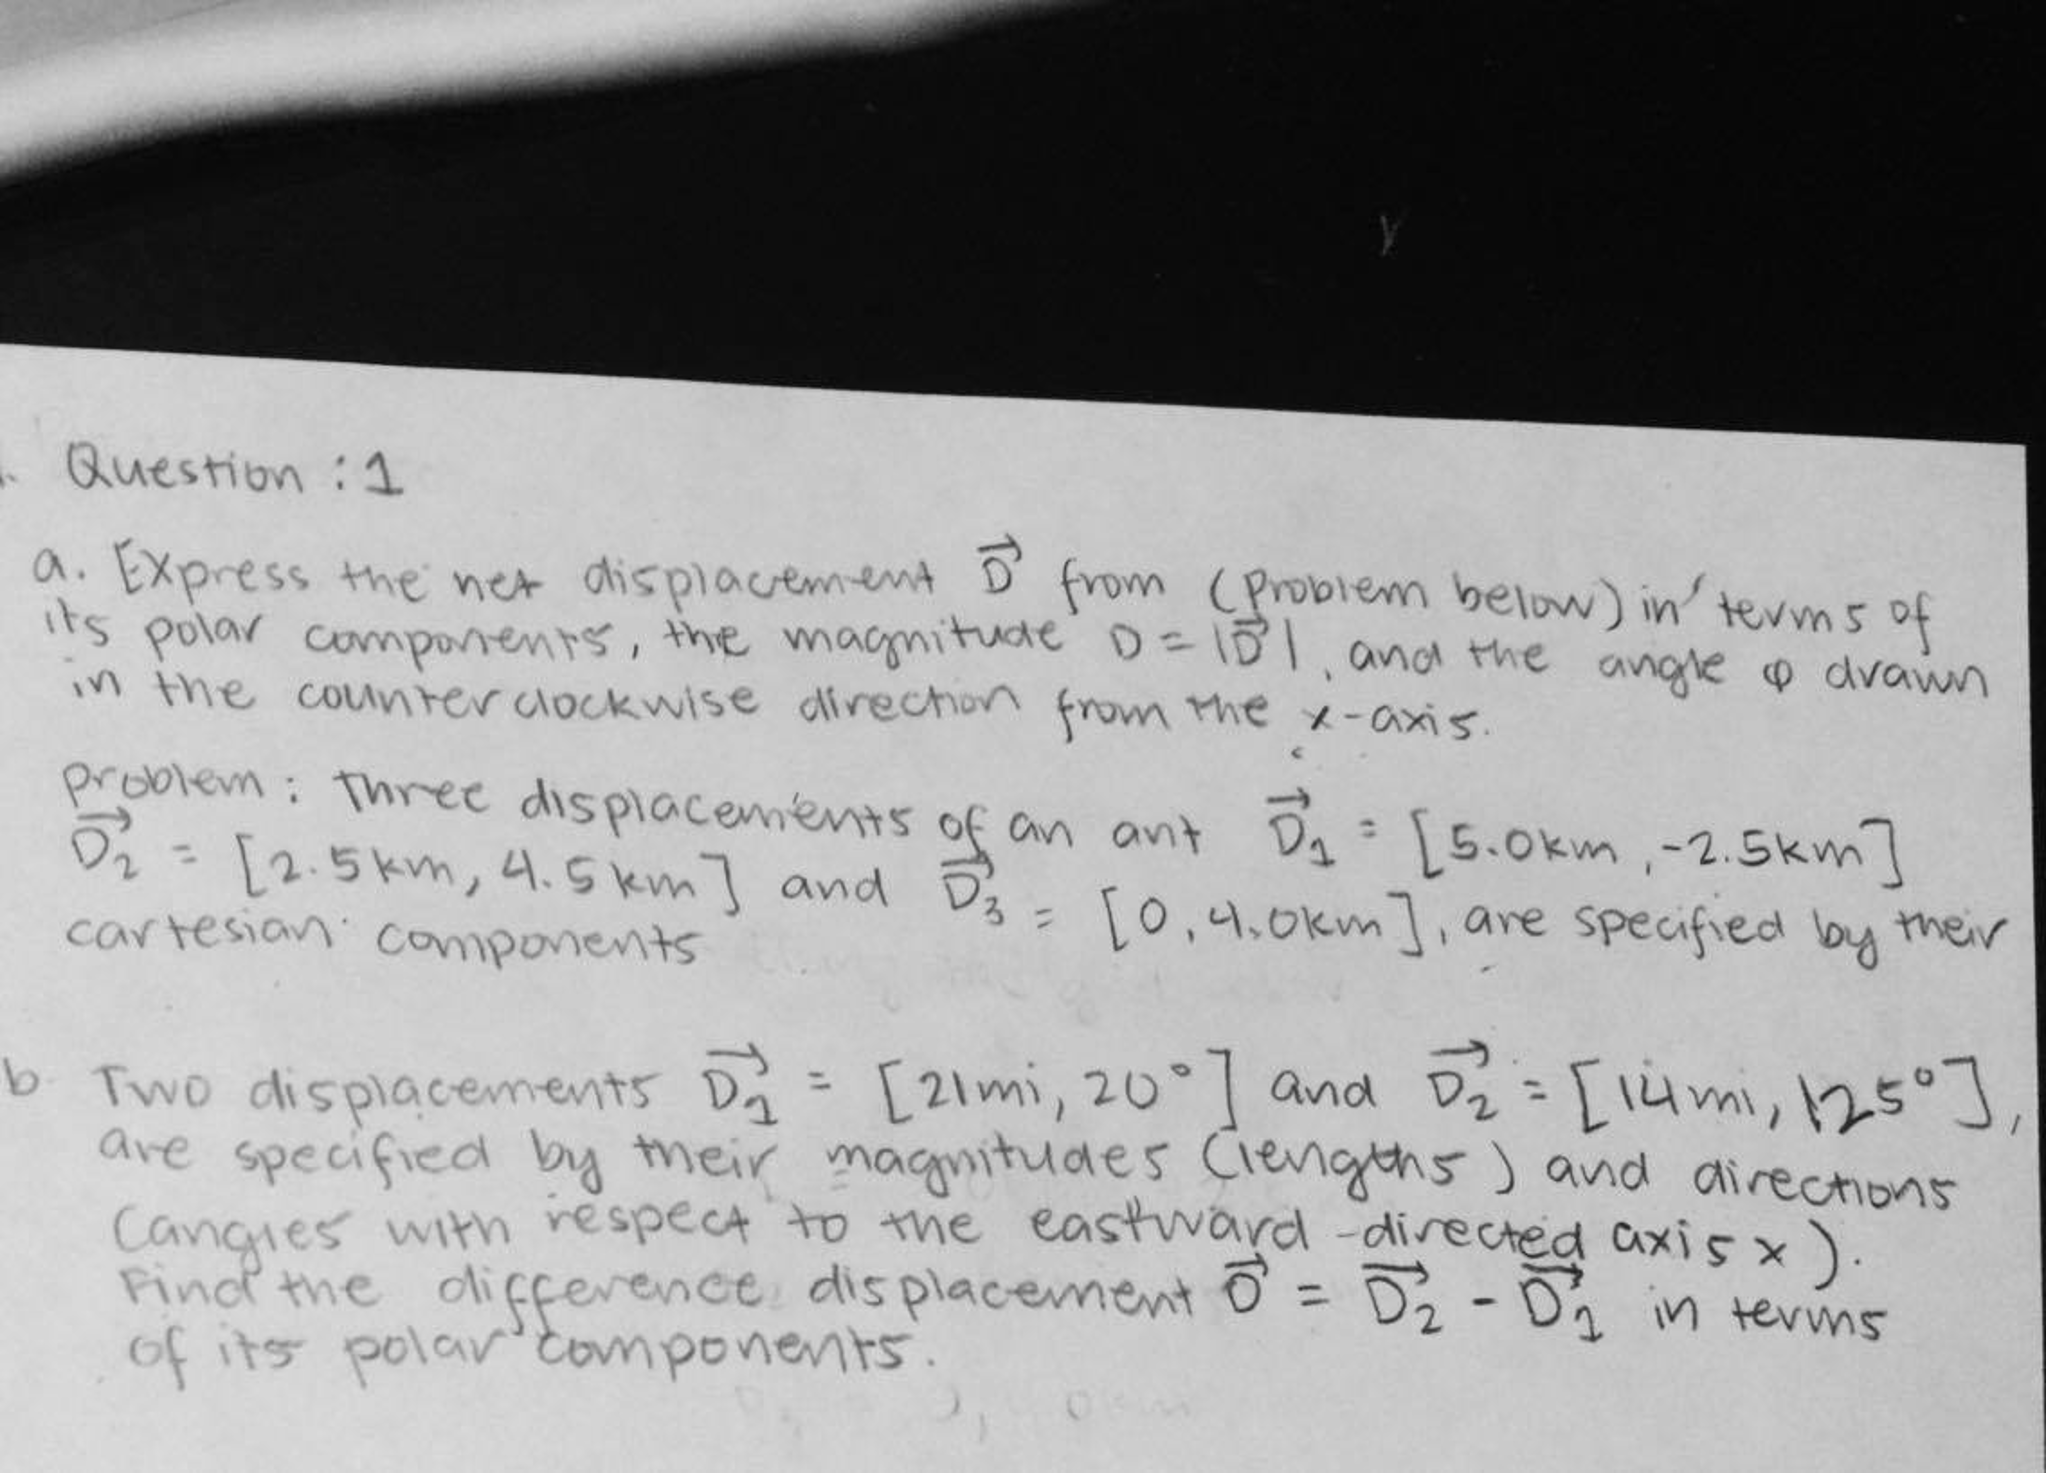 Question : 1
a. Express the net displacement D⃗ from (problem below) in terms of
its polar components, the magnitude D = |D⃗|, and the angle φ drawn
in the counterclockwise direction from the x-axis.
problem: Three displacements of an ant D⃗₁ = [5.0km, -2.5km]
D⃗₂ = [2.5km, 4.5km] and D⃗₃ = [0, 4.0km], are specified by their
cartesian components
b Two displacements D⃗₁ = [21mi, 20°] and D⃗₂ = [14mi, 125°],
are specified by their magnitudes (lengths) and directions
(angles with respect to the eastward-directed axis x).
Find the difference displacement D⃗ = D⃗₂ - D⃗₁ in terms
of its polar components.